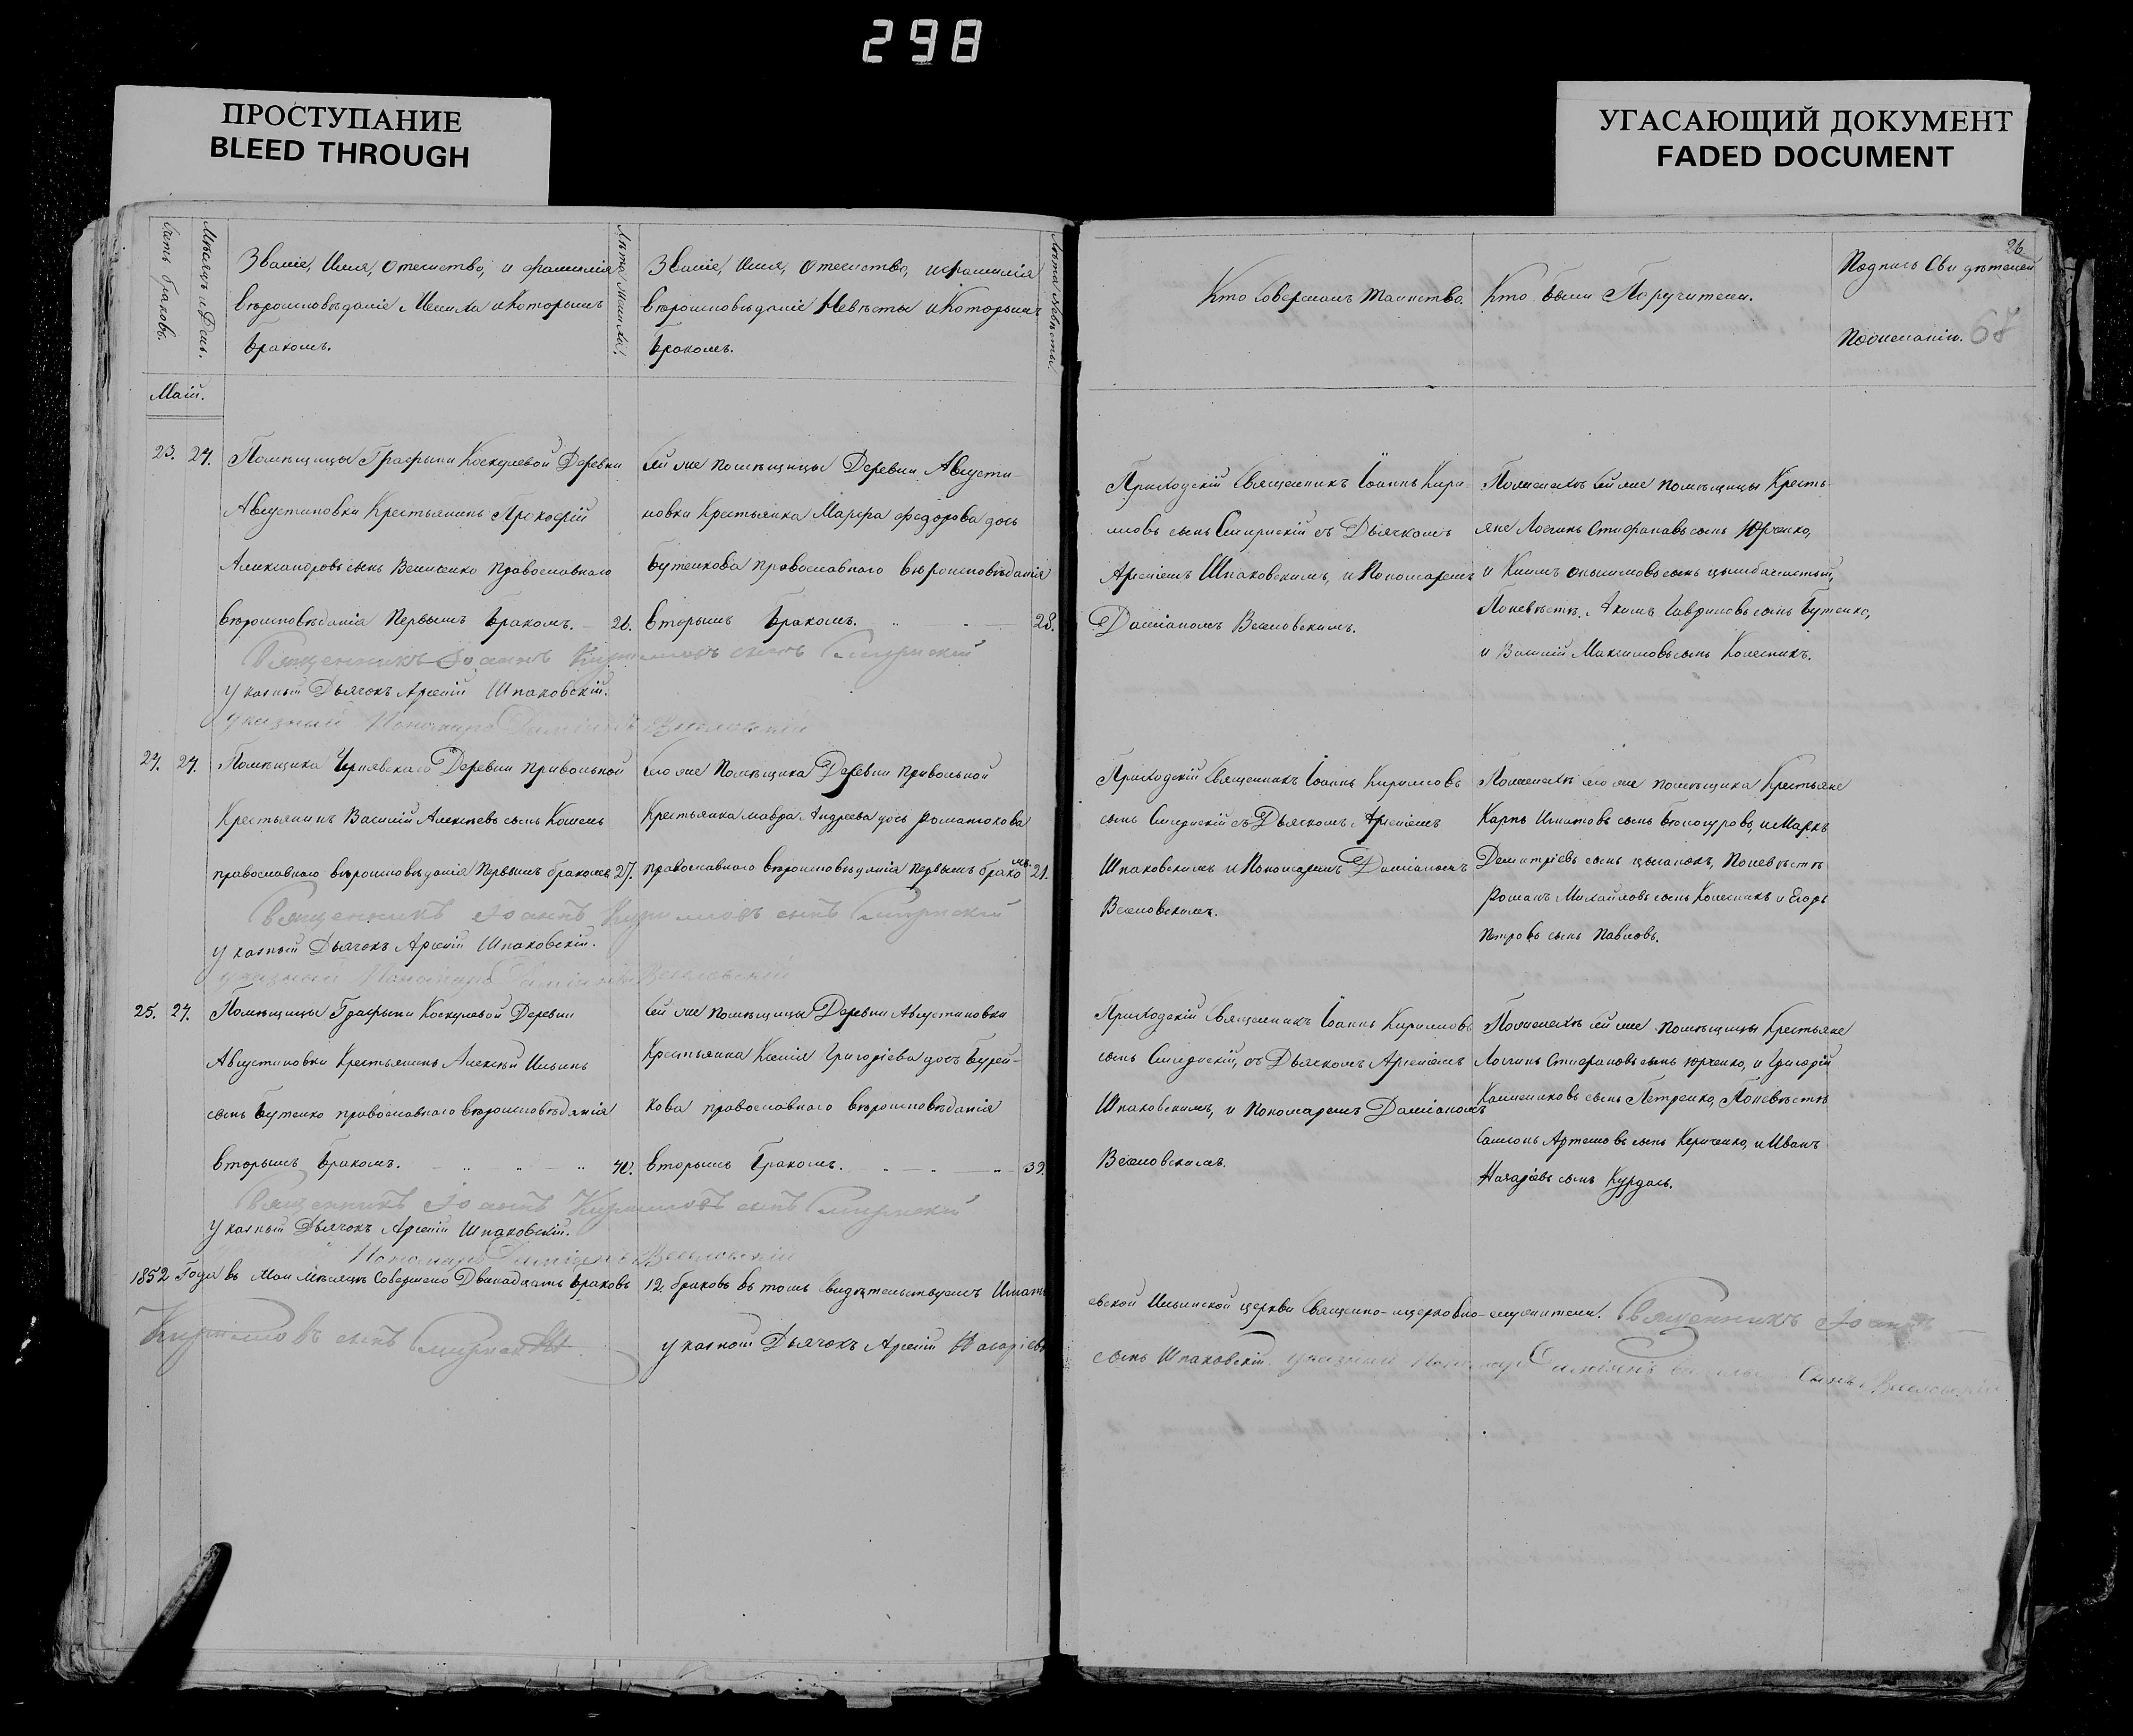 298
ПРОСТУПАНИЕ
BLEED THROUGH
УГАСАЮЩИЙ ДОКУМЕНТ
FADED DOCUMENT
Счетъ браковъ.
Мѣсяцъ и День.
Званіе, Имя, Отечество, и фамилія
вѣроисповѣданіе Жениха и Которымъ
бракомъ.
Лѣта Жениха.
Званіе, Имя, Отечество, и фамилія
вѣроисповѣданіе Невѣсты и Которымъ
бракомъ.
Лѣта Невѣсты.
Кто Совершалъ Таинство.
Кто были Поручители.
26
Подпись Свидѣтелей
67
Май.
23. 27. Помѣщицы Графыни Коскулевой Деревни
Августиновки Крестьянинъ Прокофій
Александровъ сынъ Православнаго
вѣроисповѣданія Первымъ бракомъ.
Ей же помѣщицы Деревни Августи-
новки Крестьянка Марфа Федорова дочь
Бутенкова православнаго вѣроисповѣданія
вторымъ бракомъ. 28.
Приходскій Священникъ Іоаннъ Кири-
ловъ сынъ Смирнскій съ Дьячкомъ
Арсеніемъ Шпаковскимъ, и Пономаремъ
Даміаномъ Веселовскимъ.
По женихѣ Ей же помѣщицы Кресть-
яне Логинъ Стефановъ сынъ Юрченко,
и Климъ сынъ
По невѣстѣ, Акимъ Гавриловъ сынъ Бутенко,
и Василій Максимовъ сынъ Колесникъ.
Священникъ Іоаннъ Кириловъ сынъ Смирнскій
указный Дьячокъ Арсеній Шпаковскій.
указный Пономарь Даміанъ Веселовскій
24. 27. Помѣщика Чернявскаго Деревни Привольной
Крестьянинъ Василій Алексѣевъ сынъ Кошель
православнаго вѣроисповѣданія Первымъ бракомъ 27.
Его же Помѣщика Деревни Привольной
Крестьянка Мавра Андреева дочь Романюкова
православнаго вѣроисповѣданія первымъ бракомъ. 21.
Приходскій Священникъ Іоаннъ Кириловъ
сынъ Смирнскій съ Дьячкомъ Арсеніемъ
Шпаковскимъ и Пономаремъ Даміаномъ
Веселовскимъ.
По женихѣ его же помѣщика Крестьяне
Карпъ Игнатовъ сынъ и Маркъ
Дмитріевъ сынъ По невѣстѣ
Романъ Михайловъ сынъ Колесникъ и Егоръ
Петровъ сынъ Павловъ.
Священникъ Іоаннъ Кириловъ сынъ Смирнскій
указный Дьячокъ Арсеній Шпаковскій.
указный Пономарь Даміанъ Веселовскій
25. 27. Помѣщицы Графыни Коскулевой Деревни
Августиновки Крестьянинъ Алексѣй Ильинъ
сынъ Бутенко православнаго вѣроисповѣданія
вторымъ бракомъ. 40.
Ей же помѣщицы Деревни Августиновки
Крестьянка Ксенія Григоріева дочь Бурей-
кова православнаго вѣроисповѣданія
вторымъ бракомъ. 39.
Приходскій Священникъ Іоаннъ Кириловъ
сынъ Смирнскій, съ Дьячкомъ Арсеніемъ
Шпаковскимъ, и Пономаремъ Даміаномъ
Веселовскимъ.
По женихѣ ей же помѣщицы Крестьяне
Логинъ Стефановъ сынъ Юрченко, и Григорій
сынъ Петренко, По невѣстѣ
Самсонъ Артемовъ сынъ Кериченко, и Иванъ
Назаріевъ сынъ Курдаль.
Священникъ Іоаннъ Кириловъ сынъ Смирнскій
указный Дьячокъ Арсеній Шпаковскій.
Пономарь Даміанъ Веселовскій
1852 Года въ Маи Мѣсяцѣ Совершено Двенадцать браковъ 12. браковъ въ томъ свидѣтельствуемъ Игнать-
евской Ильинской церкви Священно-церковно-служители. Священникъ Іоаннъ
Кириловъ сынъ Смирнскій
указной Дьячокъ Арсеній Назаріевъ
сынъ Шпаковскій. указный Пономарь Даміанъ сынъ Веселовскій